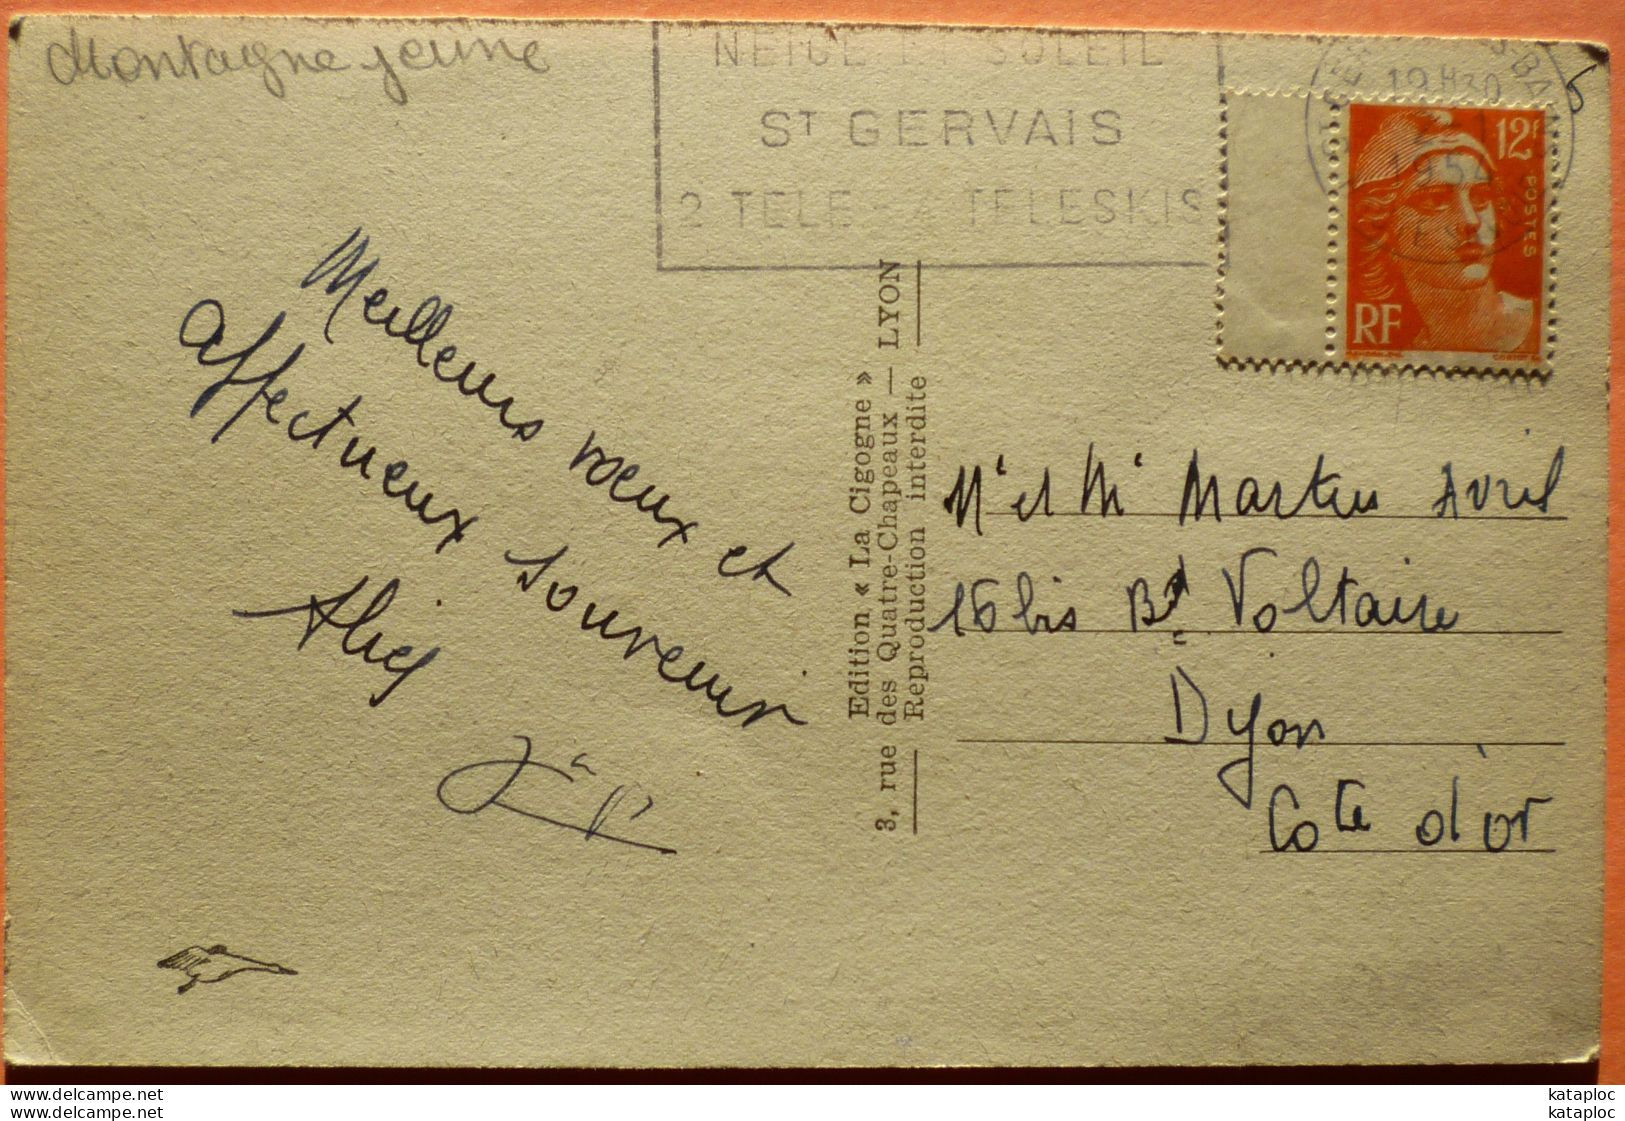 Montagne jeune
NEIGE ET SOLEIL
ST GERVAIS
2 TELE - 4 TELESKIS
12H30
1954
12F
POSTES
RF
6
Meilleurs voeux et
affectueux souvenir
Edition « La Cigogne »
3, rue des Quatre-Chapeaux — LYON
Reproduction interdite
Mr et Me Avril
16 bis Bd Voltaire
Dijon
Cote d'or
kataploc
kataploc
www.delcampe.net
www.delcampe.net